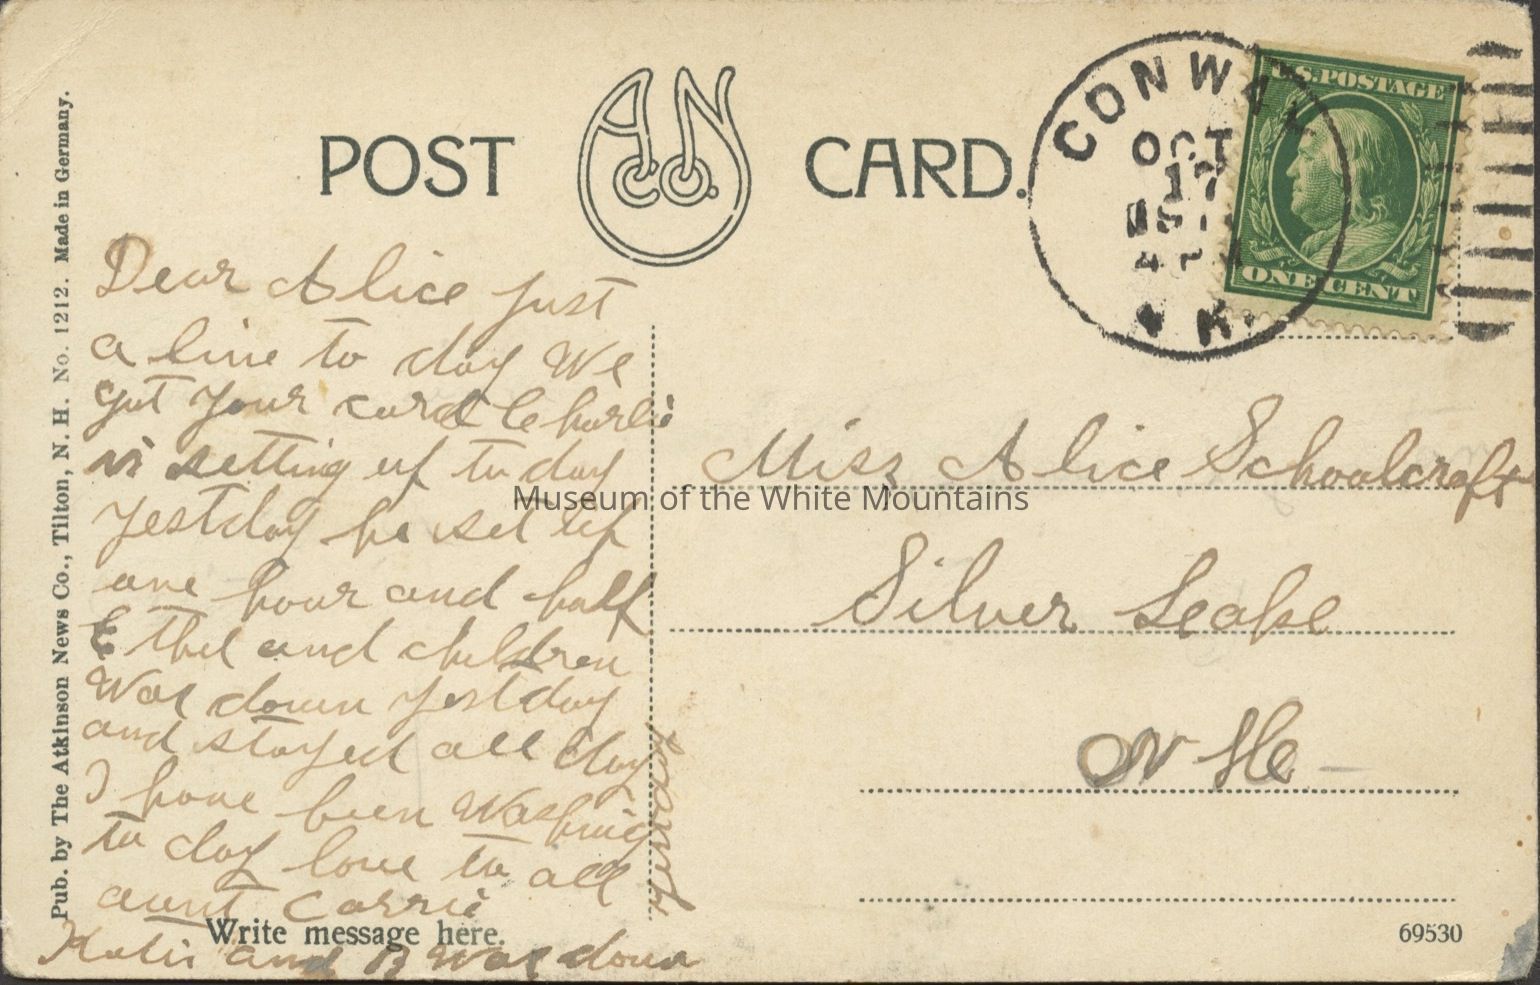 POST CARD.
A N Co.
CONWAY
OCT
17
N H
U.S. POSTAGE
ONE CENT
Pub. by The Atkinson News Co., Tilton, N. H. No. 1212. Made in Germany.
Dear Alice just
a line to day We
got your card Charlie
is setting up to day
yestday he set up
one hour and half
Ethel and children
Was down yestday
and stayed all day
I have been Washing
to day love to all
aunt Carrie
Katie and B Was down
yesday
Write message here.
Miss Alice Schoolcraft
Silver Leake
N He
Museum of the White Mountains
69530